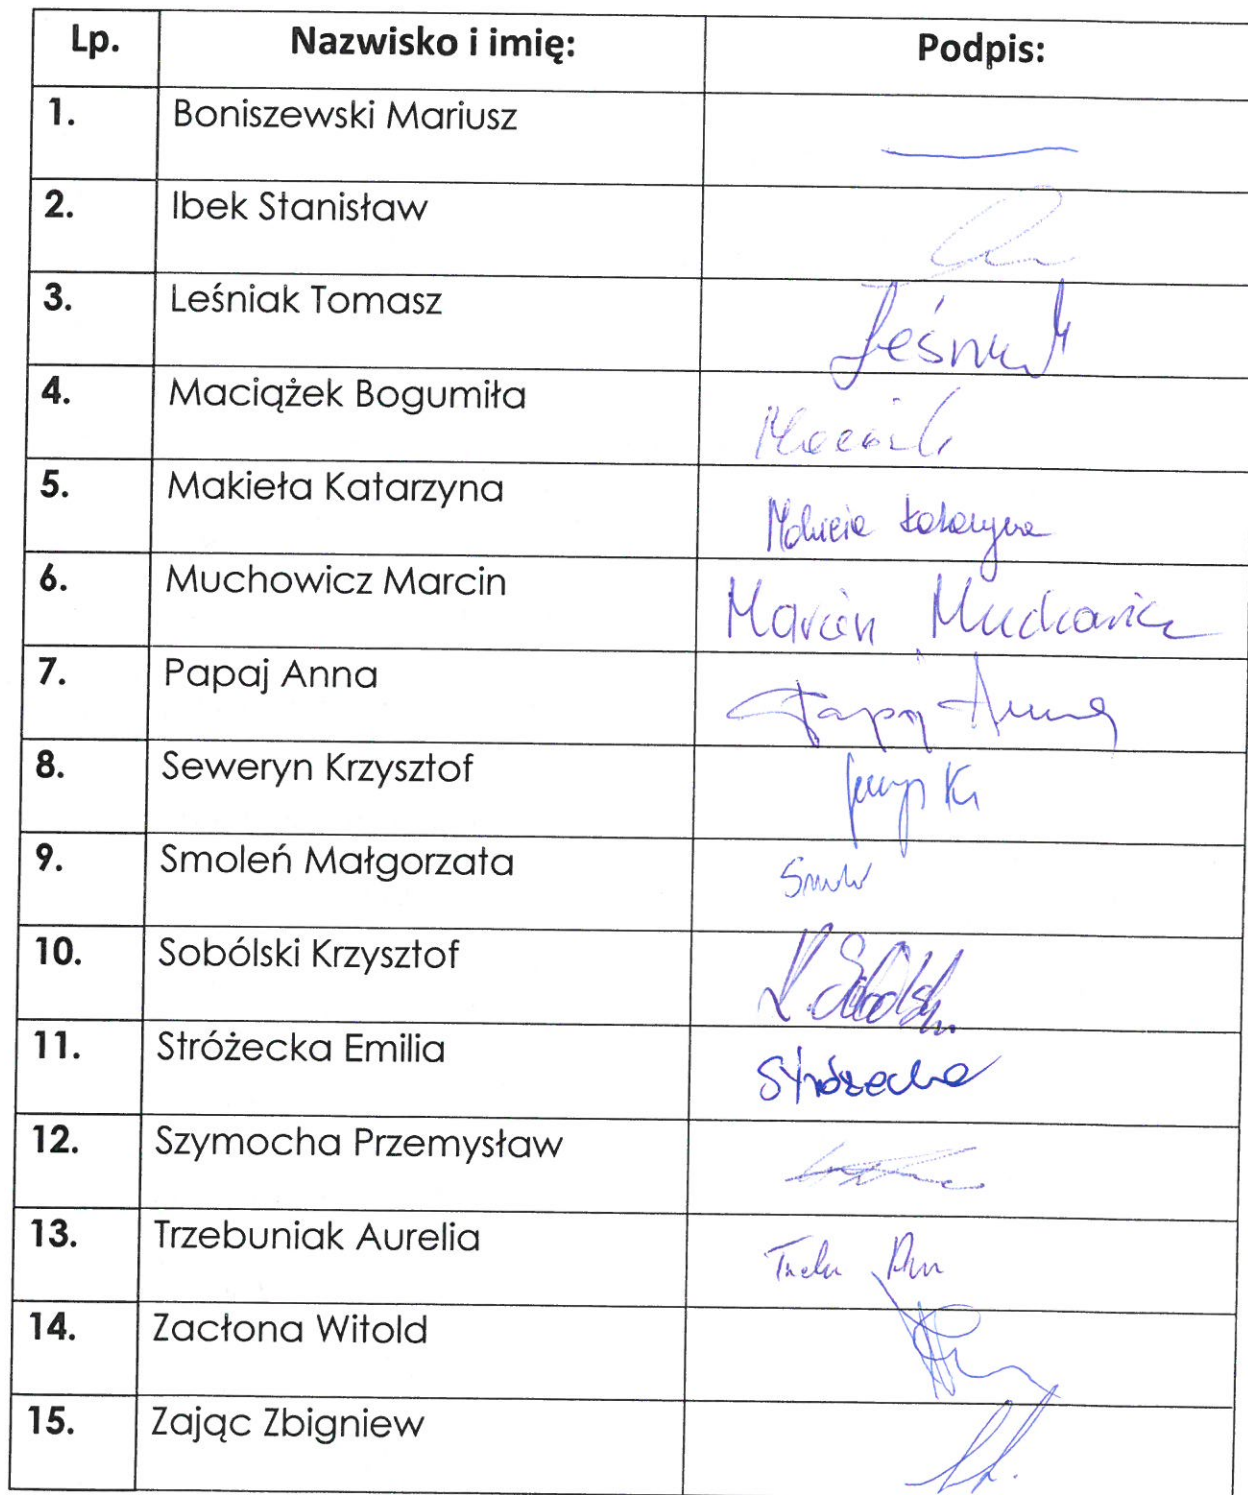 Lp. Nazwisko i imię: Podpis:
1. Boniszewski Mariusz
2. Ibek Stanisław
3. Leśniak Tomasz
4. Maciążek Bogumiła
5. Makieła Katarzyna
6. Muchowicz Marcin Marcin Muchowicz
7. Papaj Anna Papaj Anna
8. Seweryn Krzysztof
9. Smoleń Małgorzata
10. Sobólski Krzysztof
11. Stróżecka Emilia Stróżecka
12. Szymocha Przemysław
13. Trzebuniak Aurelia
14. Zacłona Witold
15. Zając Zbigniew